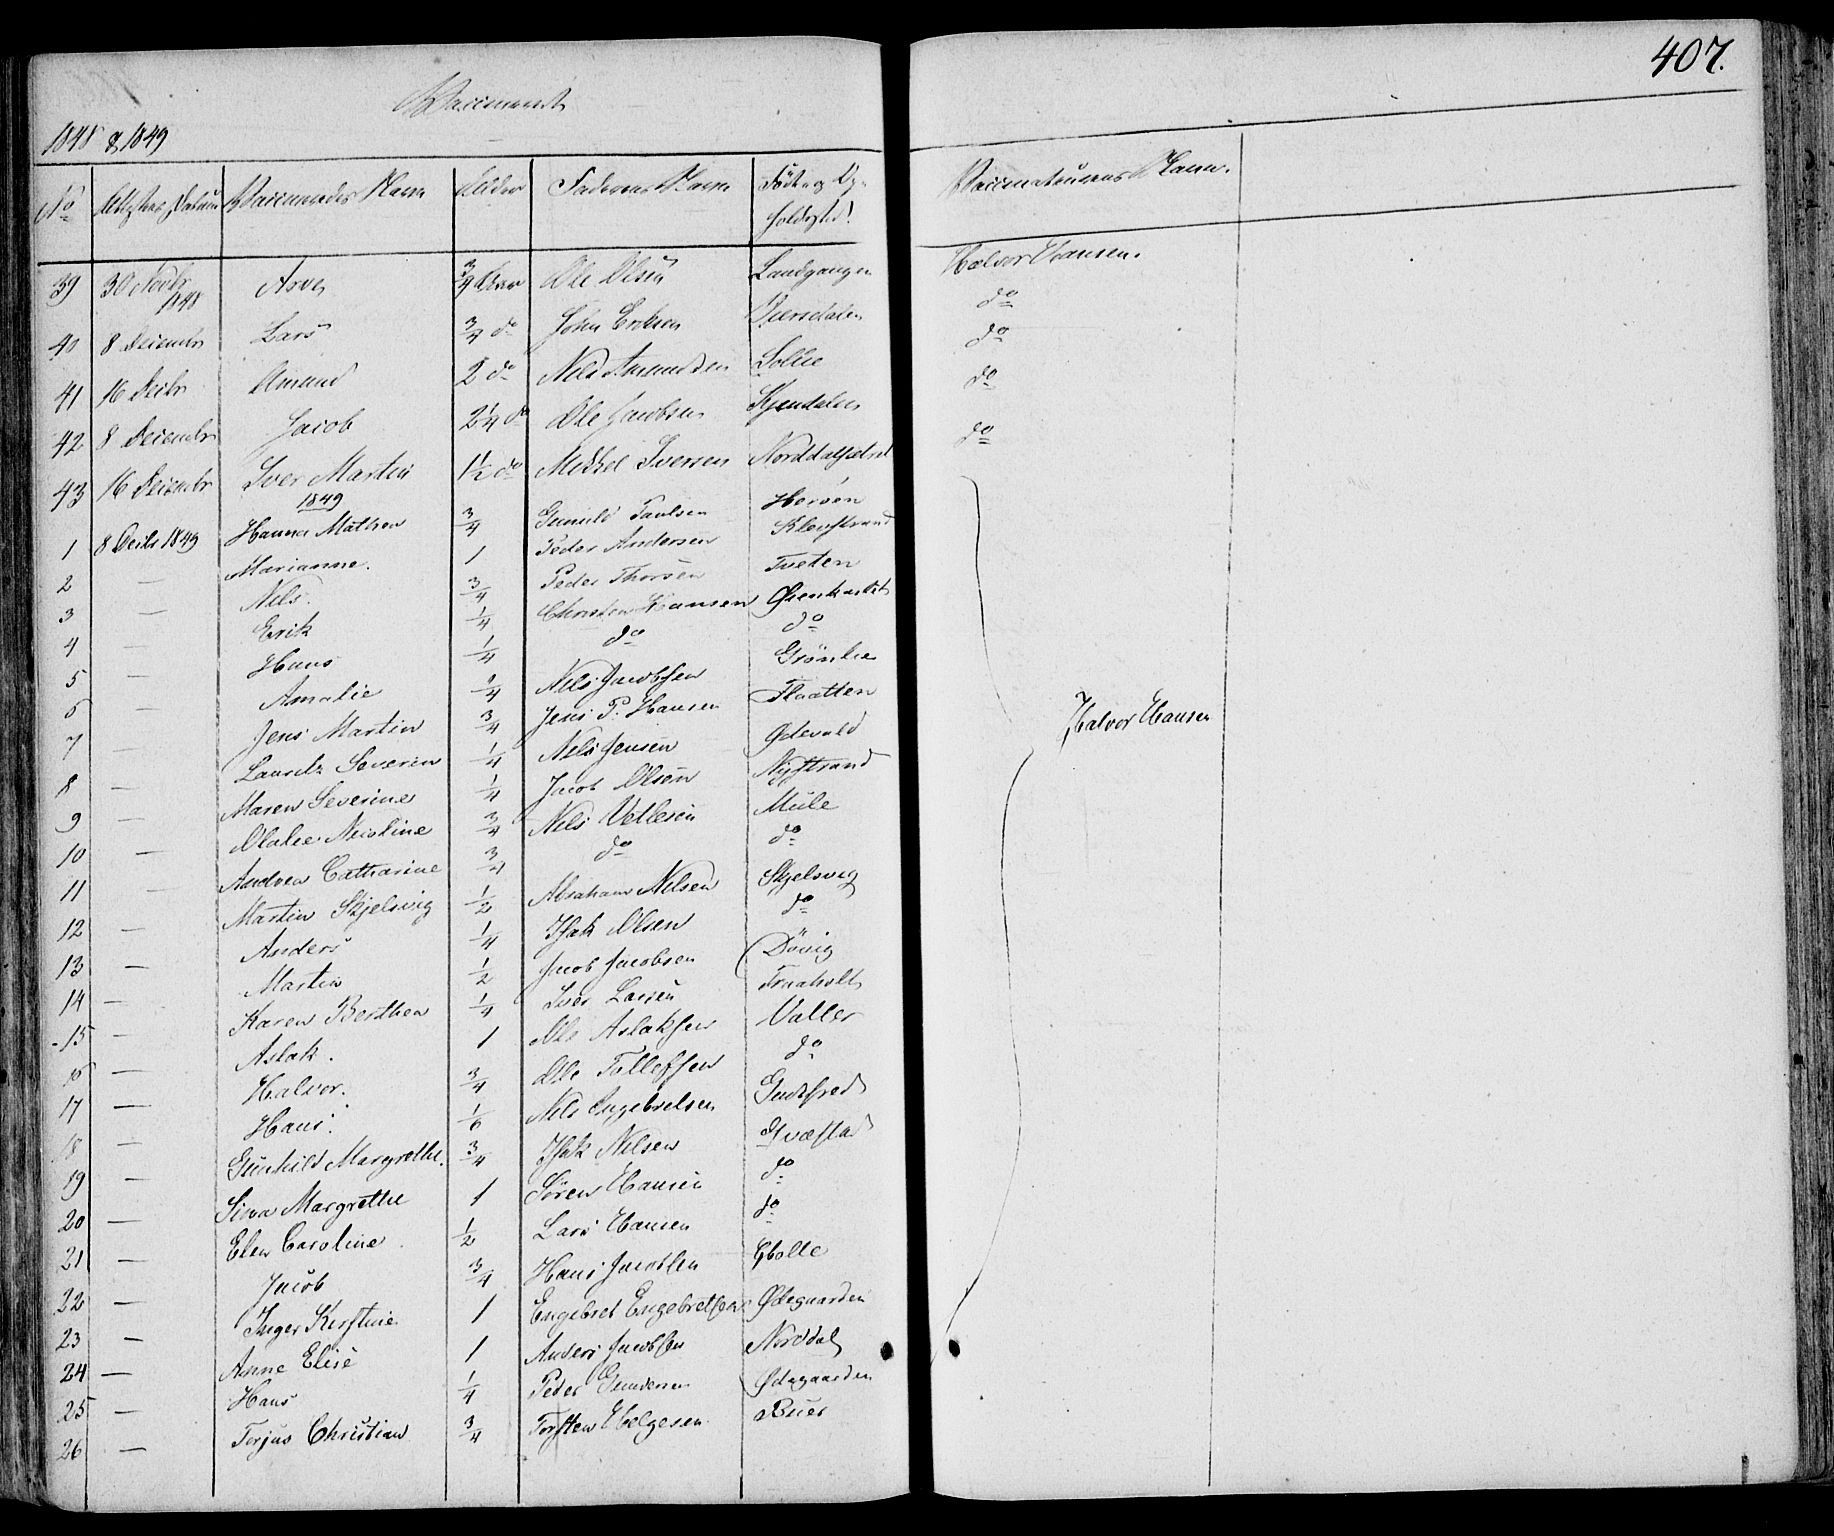 407.
Vaccinerede
1848 & 1849
No Attestens Datum Vaccineredes Navn Alder Faderens Navn Føde og Op-
holdssted. Vaccinateurens Navn.
39 30 Novbr 1848 Arve 3/4 Aar Ole Olsen Landgangen Halvor Hansen.
40 8 Decembr Lars 3/4 do John Eriksen do
41 16 Decbr Amund 2 do Nils Amundsen do
42 8 Decembr Jacob 2 1/4 do Ole Jacobsen do
43 16 Decembr Iver Martin 1 1/2 do Mikkel Iversen Norddalsætret do
1849
1 8 Decbr 1849 Hanna Mathea 3/4 Paulsen
2 — Marianne. 1 Peder Andersen Klevstrand
3 — Nils. 3/4 Peder Thorsen Tveten
4 — Erik 1/4 Christen Hansen
5 — Hans 1/4 do do
6 — Amalie 1/4 Nils Jacobsen Grønlie
7 — Jens Martin 3/4 Jens P. Hansen Flaatten
8 — Lauritz Severin 1/4 Nils Jensen
9 — Maren Severine 1/4 Jacob Olsen Nystrand
10 — Nicoline 3/4 Nils Vetlesen Mule
11 — Andrea Catharine 3/4 do do
12 — Martin Skjelsvig 1/2 Abraham Nilsen Skjelsvig
13 — Anders 1/4 Isak Olsen do
14 — Martin 1/2 Jacob Jacobsen Døvig
15 — Karen Berthea 1/4 Iver Larsen Traaholt
16 — Aslak. 1 Nils Aslaksen Valler
17 — Halvor. 3/4 Ole Tollefsen do
18 — Hans. 1/6 Nils Engebretsen
19 — Gunhild Margrethe. 3/4 Isak Nilsen
20 — Sina Margrethe 1 Søren Hansen do
21 — Elen Caroline 1/2 Lars Hansen do
22 — Jacob 3/4 Hans Jacobsen
23 — Inger Kirstine 1 Engebret Engebretsen Ødegaarden
24 — Anne Elise 1 Anders Jacobsen Norddal
25 — Hans 1/4 Peder Ødegaarden
26 — Torjus Christian 3/4 Torsten Helgesen Buer
Halvor Hansen